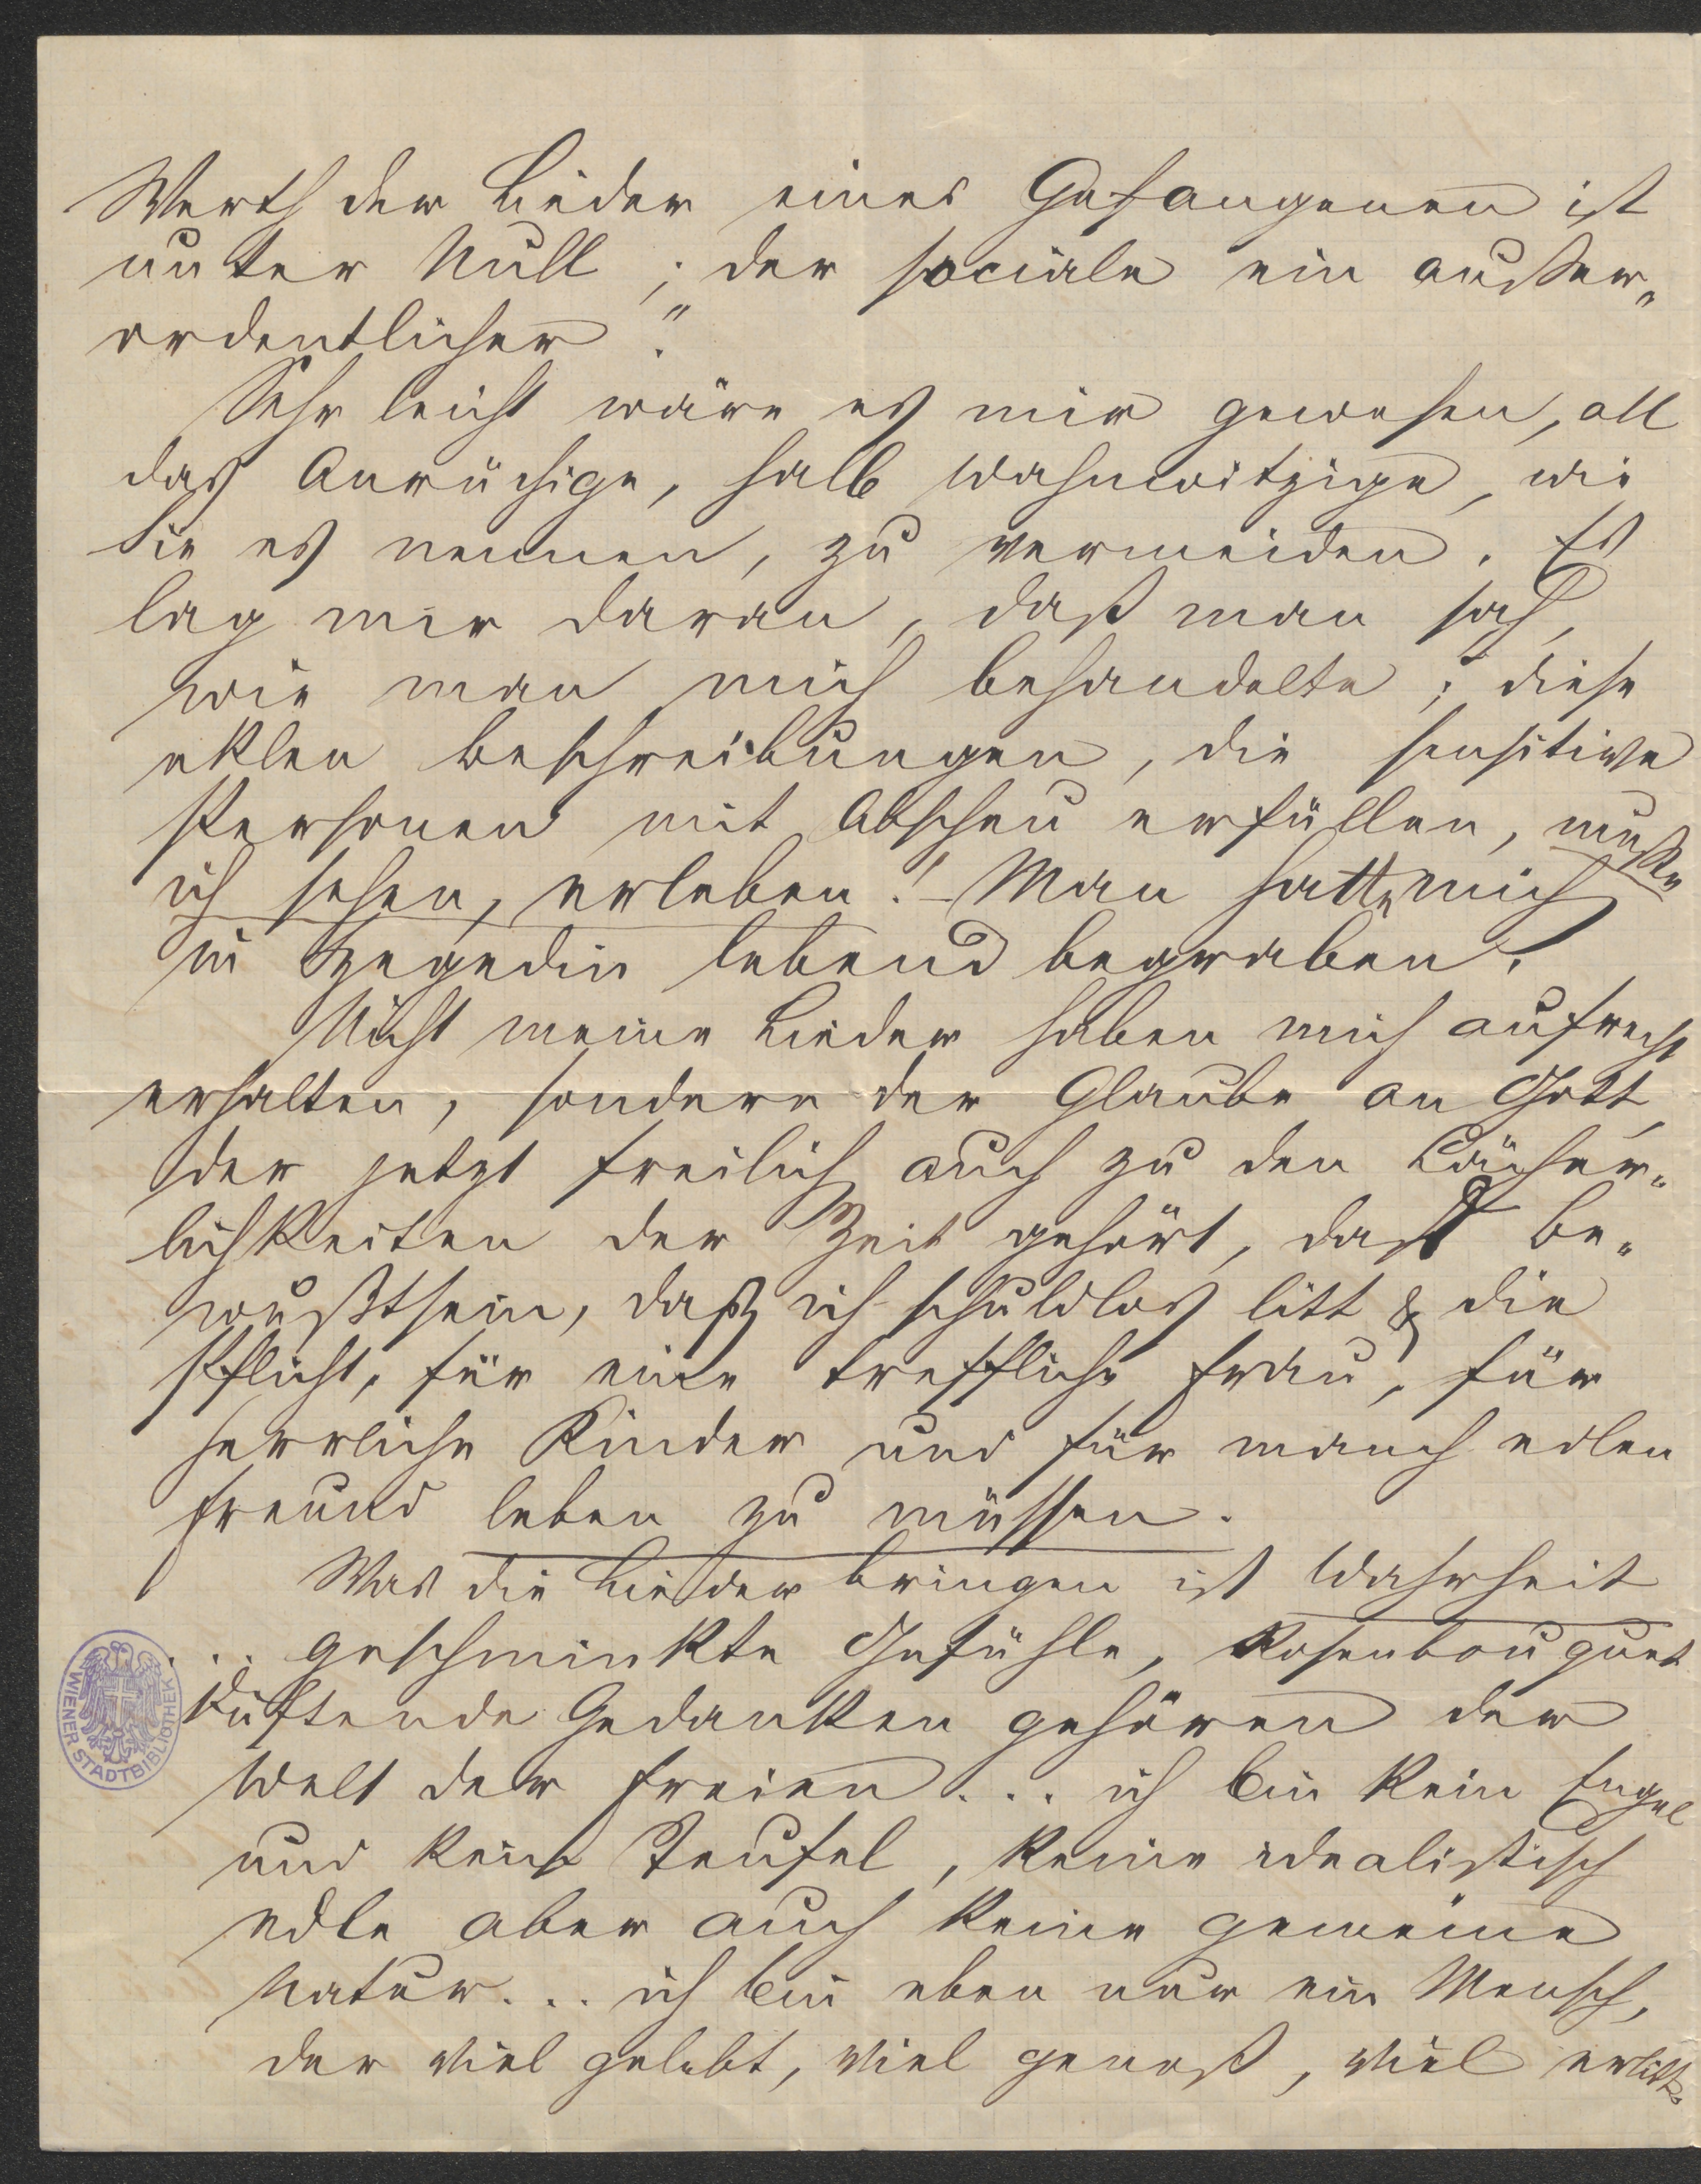 Werth der Lieder eines Gefangenen ist
unter Null; der sociale ein außer„
ordentlicher."
Sehr leicht wäre es mir gewesen, all
das Anrüchige, halb Wahnwitzige, wie
Sie es nennen, zu vermeiden. Es
lag mir daran, daß man sah,
wie man mich behandelte; diese
eklen Beschreibungen, die sensitive
Personen mit Abscheu erfüllen, mußte
ich sehen, erleben! – Man hatte mich
in Szegedin lebend begraben.
Nicht meine Lieder haben mich aufrecht
erhalten, sondern der Glaube an Gott,
der jetzt freilich auch zu den Lächer„
lichkeiten der Zeit gehört, das Be„
wußtsein, daß ich schuldlos litt & die
Pflicht, für eine treffliche Frau, für
herrliche Kinder und für manch edlen
Freund leben zu müssen.
Was die Lieder bringen ist Wahrheit
... geschminkte Gefühle, Rosenbouquet
duftende Gedanken gehören der
Welt der Freien ... ich bin kein Engel
und kein Teufel, keine idealistisch
edle aber auch keine gemeine
Natur... ich bin eben nur ein Mensch,
der viel gelebt, viel genoß, viel erlitt.
WIENER STADTBIBLIOTHEK